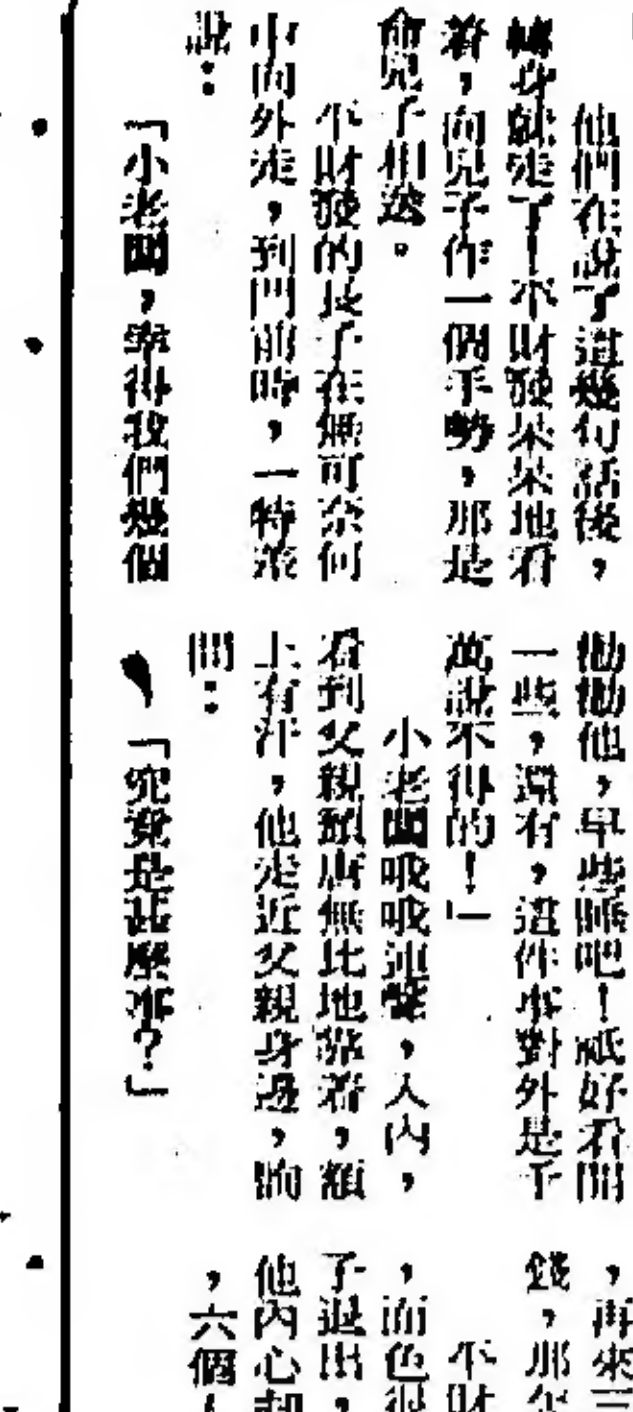 他們在說了這幾句話後，
轉身就走了！不財發呆呆地看
着，向兒子作一個手勢，那是
命兒子相送。
不財發的長子在無可奈何
中向外走，到門前時，一特派
說：
「小老闆，幸得我們幾個
勸勸他，早些睡吧！祇好看開
一些，還有，這件事對外是千
萬說不得的！」
小老闆哦哦連聲，入內，
看到父親頹唐無比地靠着，額
上有汗，他走近父親身邊，詢
問：
「究竟是甚麼事？」
，再來三
錢，那年
不財
，面色很
子退出，
他內心却
，六個